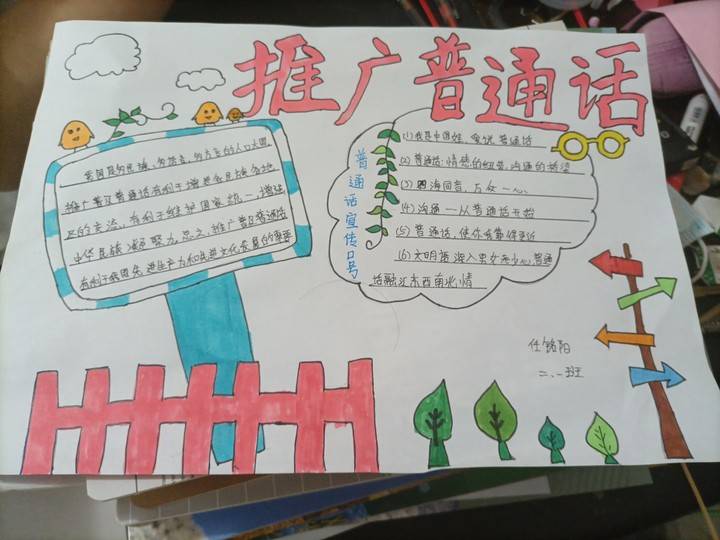 推广普通话
我国是多民族、多语言、多方言的人口大国
推广普及普通话有利于增进各民族各地
区的交流,有利于维护国家统一,增强
中华民族凝聚力,总之,推广普及普通话
有利于我国先进生产力和先进文化发展的要要
普通话宣传口号
(1)做好中国娃,会说普通话
(2)普通话:情感的纽带,沟通的桥梁
(3)四海同音,万众一心
(4)沟通——从普通话开始
(5)普通话,使你我靠得更近
(6)文明语深入男女老少心,普通
话融汇东西南北情
任铭阳
二、一班